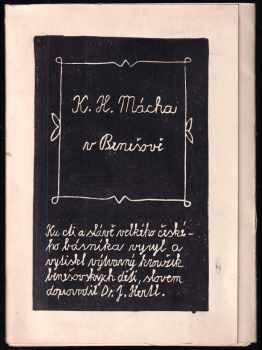 K. H. Mácha
v Benešově
Ku cti a slávě velkého české-
ho básníka vyryl a
vytiskl výtvarný kroužek
benešovských dětí, slovem
doprovodil Dr. J. Hertl.